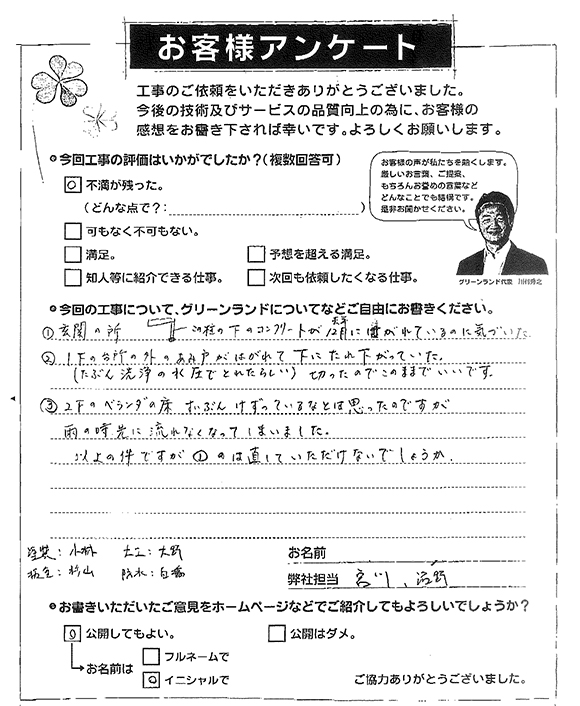 お客様アンケート
工事のご依頼をいただきありがとうございました。
今後の技術及びサービスの品質向上の為に、お客様の
感想をお書き下されば幸いです。よろしくお願いします。
今回工事の評価はいかがでしたか？(複数回答可)
○ 不満が残った。
(どんな点で？: )
可もなく不可もない。
満足。
予想を超える満足。
知人等に紹介できる仕事。
次回も依頼したくなる仕事。
お客様の声が私たちを動くします。
厳しいお言葉、ご提案、
もちろんお誉めの言葉など
どんなことでも結構です。
是非お聞かせください。
グリーンランド代表
今回の工事について、グリーンランドについてなどご自由にお書きください。
① 玄関の所 この柱の下のコンクリートが 12月に がれているのに気づいた.
② 1Fの台所の外のあみ戸がはがれて下にたれ下がっていた.
(たぶん洗浄の水圧でとれたらしい) 切ったのでこのままでいいです.
③ 2Fのベランダの床 ずいぶん けずっているなとは思ったのですが
雨の時先に流れなくなってしまいました.
以上の件ですが ① のは直していただけないでしょうか.
塗装: 小林 大工: 大野
板金: 杉山 防水:
お名前
弊社担当 宮川、
お書きいただいたご意見をホームページなどでご紹介してもよろしいでしょうか？
○ 公開してもよい。
公開はダメ。
お名前は
フルネームで
○ イニシャルで
ご協力ありがとうございました。